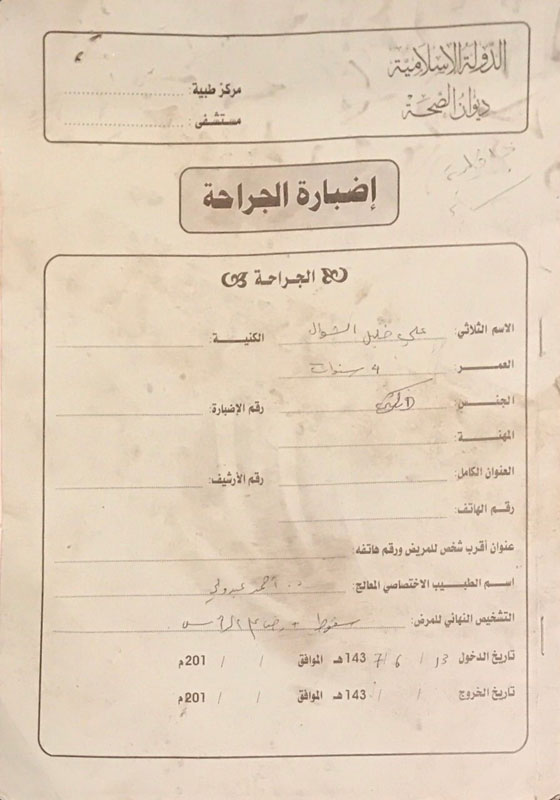 الدولة الإسلامية
ديوان الصحة
مركز طبية :
مستشفى :
إضبارة الجراحة
الجراحة
الاسم الثلاثي: علي خليل الكنية:
العمـــــر: 4 سنوات
الجنـــس: رقم الإضبارة:
المهنـة:
العنوان الكامل: رقم الأرشيف:
رقـم الهاتف:
عنوان أقرب شخص للمريض ورقم هاتفه:
اسـم الطبـيـب الاختصاصي المعالج: د. أحمد
التشخيص النهائي للمرض: سقوط + الرأس
تاريخ الدخول 13 / 6 / 7 143 هـ الموافق / / 201 م
تاريخ الخروج / / 143 هـ الموافق / / 201 م